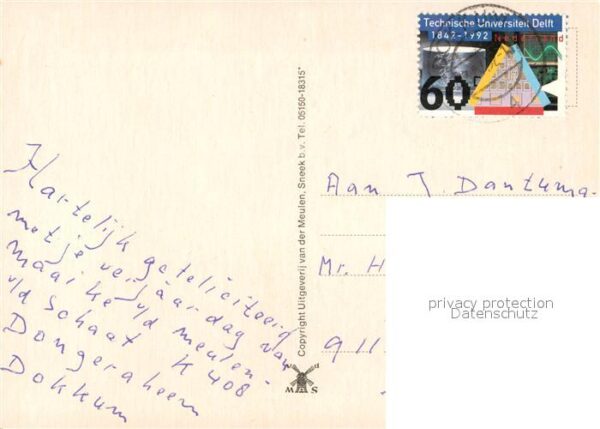 Technische Universiteit Delft
1842-1992
Nederland
60
Hartelijk gefeliciteerd
met je verjaardag van
Maaike v/d meulen-
v/d Schaat K 408
Dongeraheem
Dokkum
Copyright Uitgeverij van der Meulen, Sneek b.v. Tel. 05150-18315*
Aan J. Dantuma
Mr. H
911
privacy protection
Datenschutz